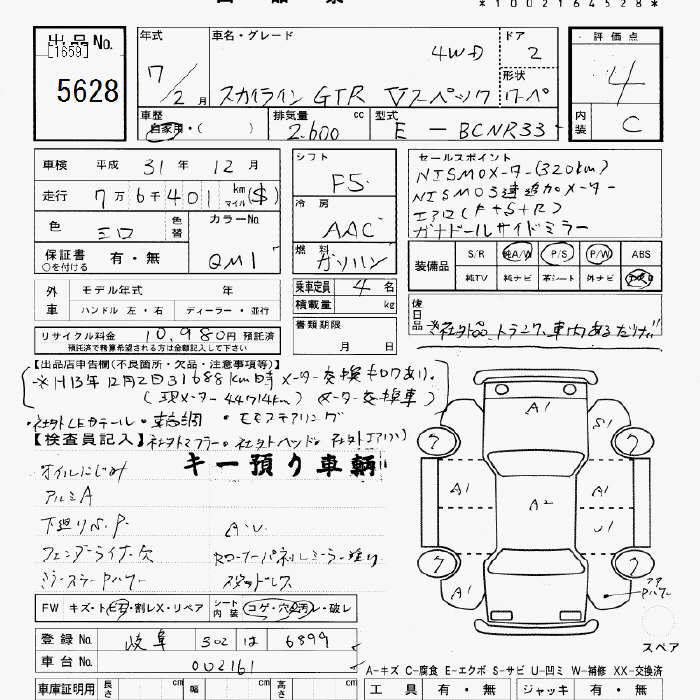 *1002164528*
出品No.
[1659]
5628
年式
7/2月
車名・グレード
4WD
スカイライン GTR Vスペック
ドア
2
形状
クーペ
評価点
4
内装
C
車歴
自家用・( )
排気量
2.600 cc
型式
E-BCNR33
車検 平成 31年 12月
走行 7万6千401 km マイル ($)
色
シロ
色替
カラーNo.
QM1
保証書 有・無
○を付ける
シフト
F5
冷房
AAC
燃料
ガソリン
乗車定員 4名
積載量 kg
書類期限
月 日
セールスポイント
NISMOメーター(320km)
NISMO3連追加メーター
エアロ(F+S+R)
ガナドールサイドミラー
装備品
S/R 純A/W P/S P/W ABS
純TV 純ナビ 革シート 外ナビ エアB
後日品
※社外品 トランク、車内あるだけ!!
外車
モデル年式 年
ハンドル 左・右 ディーラー・並行
リサイクル料金 10,980円 預託済
預託済で精算希望される方は金額記入して下さい
【出品店申告欄(不良箇所・欠品・注意事項等)】
※H13年12月2日31688km時メーター交換キロクあり。
(現メーター44714km)(メーター交換車)
・社外LEDテール・車高調 ・モモステアリング
【検査員記入】社外マフラー。社外ヘッド。社外エアクリ
キー預り車輌
オイルにじみ
アルミA
下廻りS.P
A.U
フェンダーライナー欠
FW キズ・トビ石・割レX・リペア
シート内装 コゲ・穴・汚レ・破レ
登録No. 岐阜 302 は 6899
車台No. 002161
車庫証明用 長さ cm 幅 cm 高さ cm
A1
S1
A1
A2
A1
U1
A1
スペア
A-キズ C-腐食 E-エクボ S-サビ U-凹ミ W-補修 XX-交換済
工具 有・無 ジャッキ 有・無